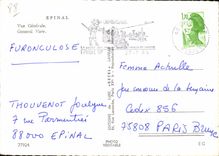 88
EPINAL
Vue Générale.
General View.
1,80
FURONCULOSE
Femme Actuelle
Jeu concours de la semaine
Cedex 856
75808 PARIS Brune
THOUVENOT Jocelyne
7 rue Parmentier
88000 EPINAL
PHOTO
VERITABLE